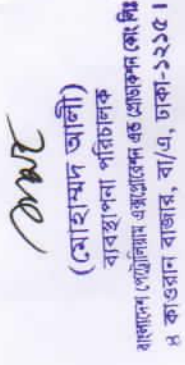 (মোহাম্মদ আলী)
ব্যবস্থাপনা পরিচালক
বাংলাদেশ পেট্রোলিয়াম এক্সপ্লোরেশন এন্ড প্রোডাকশন কোং লিঃ
৪ কাওরান বাজার, বা/এ, ঢাকা-১২১৫।